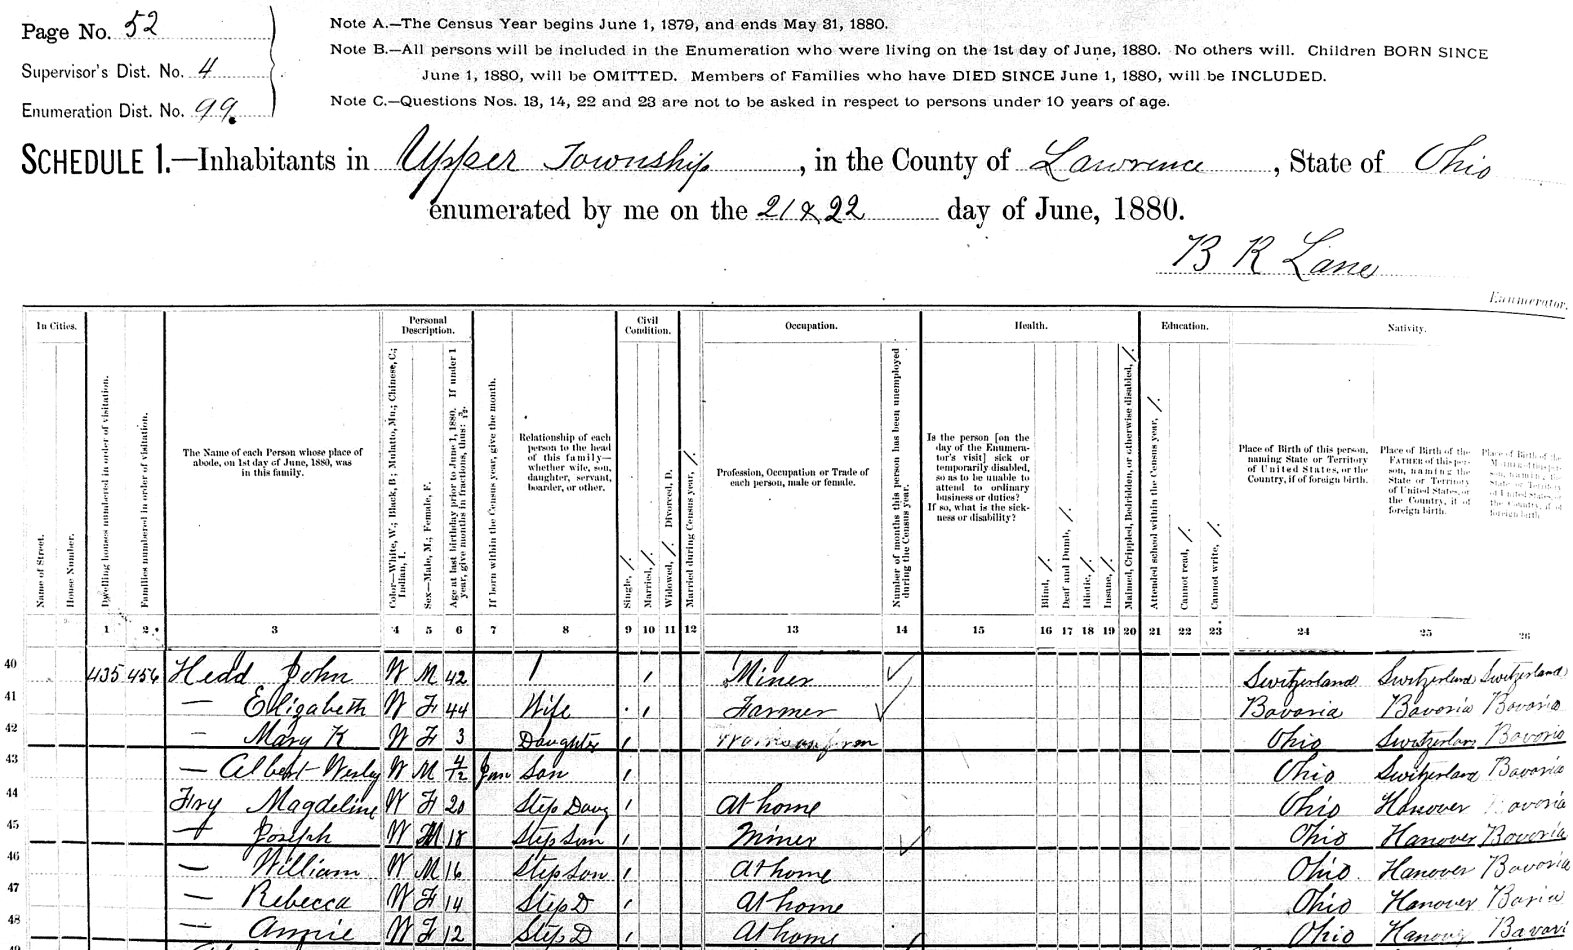 Page No. 52
Supervisor's Dist. No. 4
Enumeration Dist. No. 99.
Note A.—The Census Year begins June 1, 1879, and ends May 31, 1880.
Note B.—All persons will be included in the Enumeration who were living on the 1st day of June, 1880. No others will. Children BORN SINCE
June 1, 1880, will be OMITTED. Members of Families who have DIED SINCE June 1, 1880, will be INCLUDED.
Note C.—Questions Nos. 13, 14, 22 and 23 are not to be asked in respect to persons under 10 years of age.
SCHEDULE 1.—Inhabitants in Upper Township, in the County of Lawrence, State of Ohio
enumerated by me on the 21 & 22 day of June, 1880.
B R Lane
Enumerator.
In Cities.
Name of Street.
House Number.
Dwelling houses numbered in order of visitation.
Families numbered in order of visitation.
The Name of each Person whose place of
abode, on 1st day of June, 1880, was
in this family.
Personal
Description.
Color—White, W.; Black, B.; Mulatto, Mu.; Chinese, C.;
Indian, I.
Sex—Male, M.; Female, F.
Age at last birthday prior to June 1, 1880. If under 1
year, give months in fractions, thus: 3/12.
If born within the Census year, give the month.
Relationship of each
person to the head
of this family—
whether wife, son,
daughter, servant,
boarder, or other.
Civil
Condition.
Single, /.
Married, /.
Widowed, /. Divorced, D.
Married during Census year, /.
Occupation.
Profession, Occupation or Trade of
each person, male or female.
Number of months this person has been unemployed
during the Census year.
Health.
Is the person [on the
day of the Enumera-
tor's visit] sick or
temporarily disabled,
so as to be unable to
attend to ordinary
business or duties?
If so, what is the sick-
ness or disability?
Blind, /.
Deaf and Dumb, /.
Idiotic, /.
Insane, /.
Maimed, Crippled, Bedridden, or otherwise disabled, /.
Education.
Attended school within the Census year, /.
Cannot read, /.
Cannot write, /.
Nativity.
Place of Birth of this person,
naming State or Territory
of United States, or the
Country, if of foreign birth.
Place of Birth of the
FATHER of this per-
son, naming the
State or Territory
of United States, or
the Country, if of
foreign birth.
Place of Birth of the
MOTHER of this per-
son, naming the
State or Territory
of United States, or
the Country, if of
foreign birth.
1 2 3 4 5 6 7 8 9 10 11 12 13 14 15 16 17 18 19 20 21 22 23 24 25 26
40 435 456 Hedd John W M 42 / / Miner Switzerland Switzerland Switzerland
41 — Elizabeth W F 44 Wife / Farmer Bavaria Bavaria Bavaria
42 — Mary K W F 3 Daughter / Works on farm Ohio Switzerland Bavaria
43 — Albert Wesley W M 4/12 Jan Son / Ohio Switzerland Bavaria
44 Fry Magdeline W F 20 Step Daug / At home Ohio Hanover Bavaria
45 — Joseph W M 18 Step Son / Miner Ohio Hanover Bavaria
46 — William W M 16 Step Son / At home Ohio Hanover Bavaria
47 — Rebecca W F 14 Step D / At home Ohio Hanover Baria
48 — Annie W F 12 Step D / At home Ohio Hanov Bavari